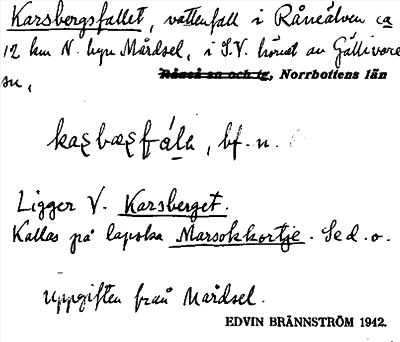 Karsbergsfallet, vattenfall i Råneälven ca
12 km N. byn Mårdsel, i S.V. hörnet av Gällivare
Råneå sn och tg, Norrbottens län
sn,
bf. n.
Ligger V. Karsberget.
Kallas på lapska Marsokkortje. Se d. o.
Uppgiften från Mårdsel.
EDVIN BRÄNNSTRÖM 1942.